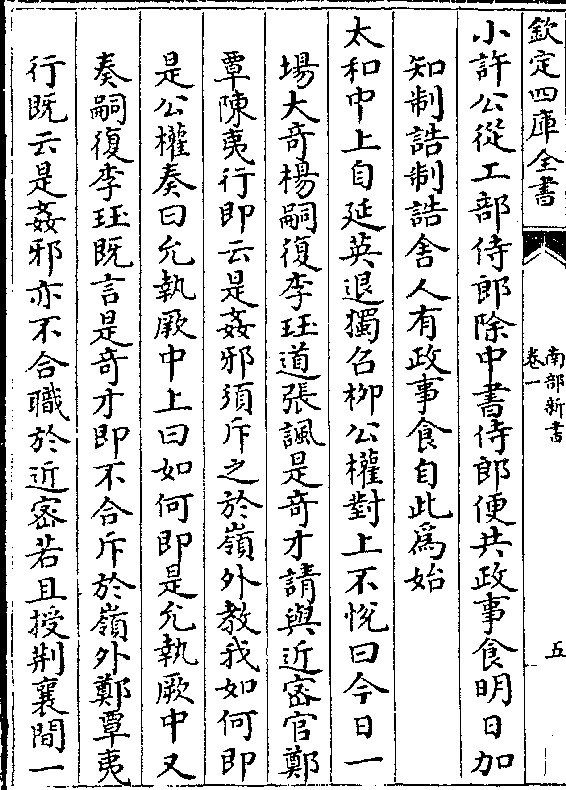 欽定四庫全書
南部新書
卷一
五
小許公從工部侍郎除中書侍郎便共政事食明日加
知制誥制誥舍人有政事食自此爲始
太和中上自延英退獨召柳公權對上不悅曰今日一
場大奇楊嗣復李珏道張諷是奇才請與近密官鄭
覃陳夷行即云是姦邪須斥之於嶺外教我如何即
是公權奏曰允執厥中上曰如何即是允執厥中又
奏嗣復李珏既言是奇才即不合斥於嶺外鄭覃夷
行既云是姦邪亦不合職於近密若且授荆襄間一